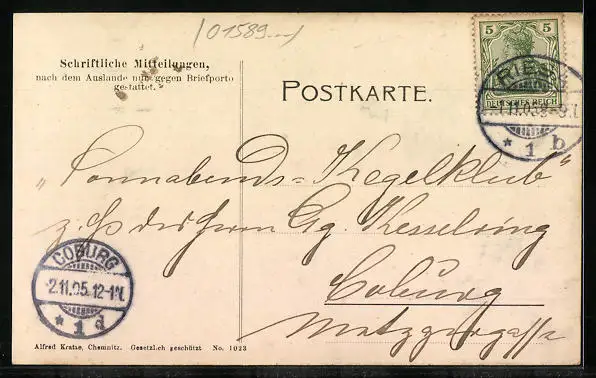 (01589...)
Schriftliche Mitteilungen,
nach dem Auslande nur gegen Briefporto
gestattet.
POSTKARTE.
5 5
DEUTSCHES REICH
RIESA
1.11.05
* 1 b
"Sonnabends-Kegelklub"
z. H. des Herrn Gg. Kesselring
Coburg
Metzgergasse
COBURG
2.11.05.12-1N.
* 1 d
Alfred Kratze, Chemnitz. Gesetzlich geschützt No. 1023